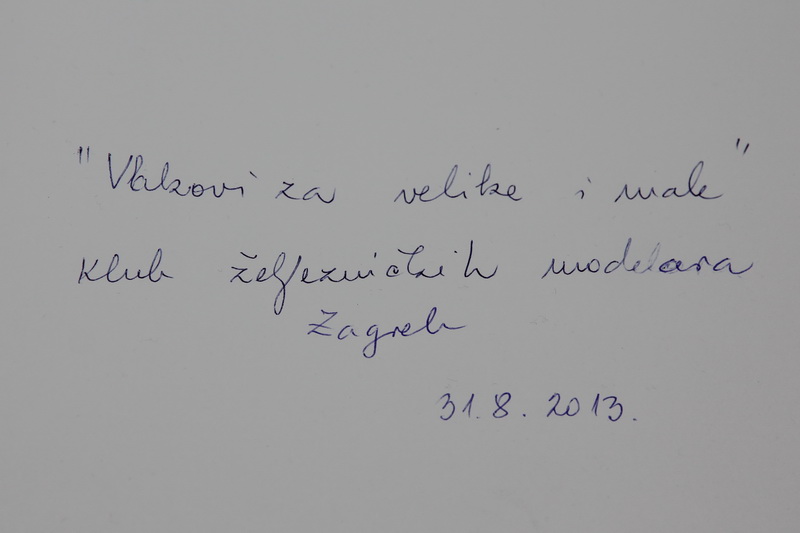 "Vlakovi za velike i male"
Klub željezničkih modelara
Zagreb
31.8.2013.